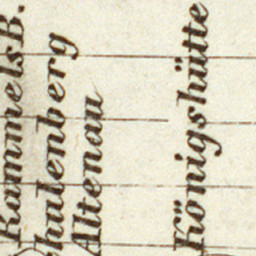 RammelsB.
hulenberg
Altenau
Königshütte